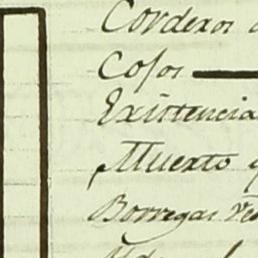 Corderos
Cojos
Existencia
Muerto
Borregas